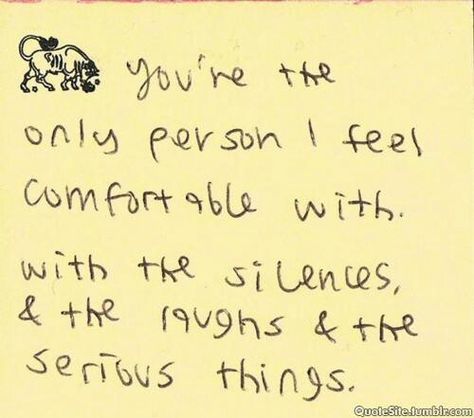 you're the
only person I feel
comfortable with.
with the silences,
& the laughs & the
serious things.
QuoteSite.tumblr.com